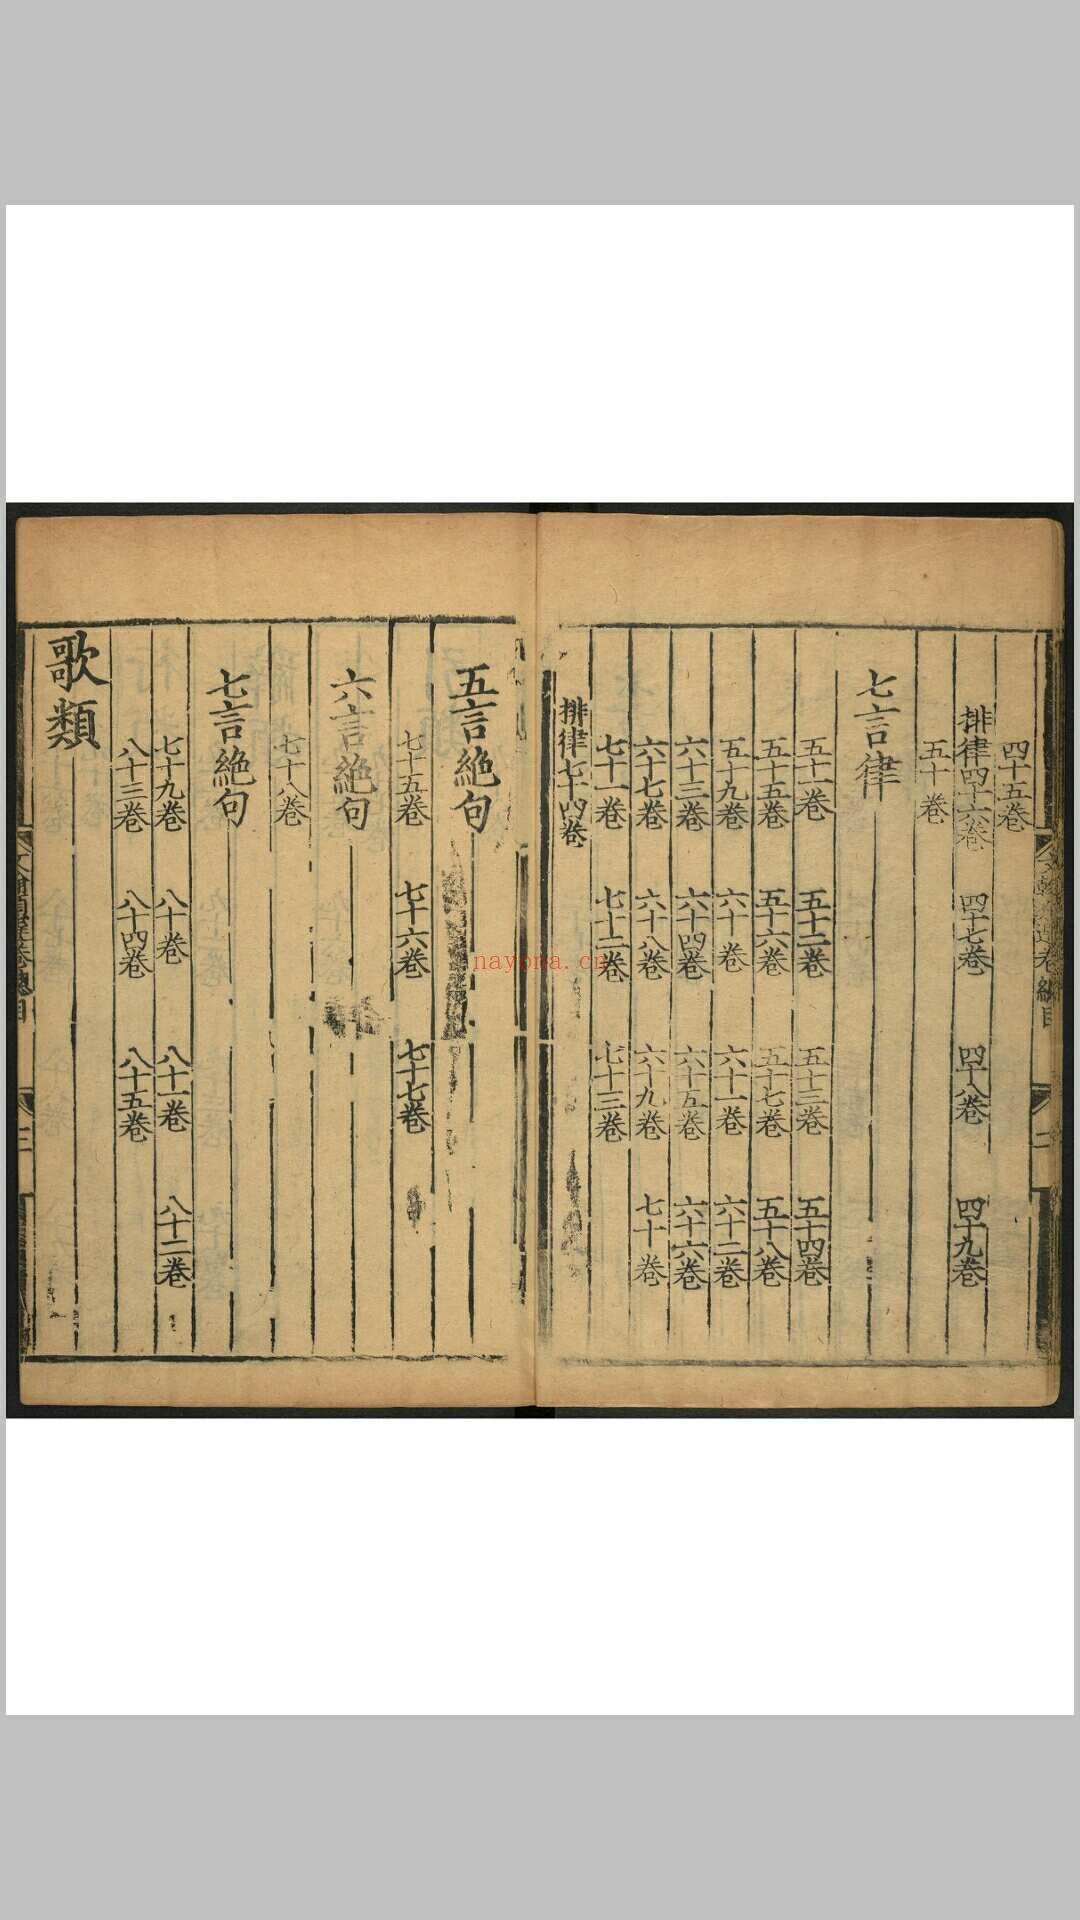 四十五卷
排律四十六卷 四十七卷 四十八卷 四十九卷
五十卷
七言律
五十一卷 五十二卷 五十三卷 五十四卷
五十五卷 五十六卷 五十七卷 五十八卷
五十九卷 六十卷 六十一卷 六十二卷
六十三卷 六十四卷 六十五卷 六十六卷
六十七卷 六十八卷 六十九卷 七十卷
七十一卷 七十二卷 七十三卷
排律七十四卷
五言絶句
七十五卷 七十六卷 七十七卷
六言絶句
七十八卷
七言絶句
七十九卷 八十卷 八十一卷 八十二卷
八十三卷 八十四卷 八十五卷
歌類
nayona.cn